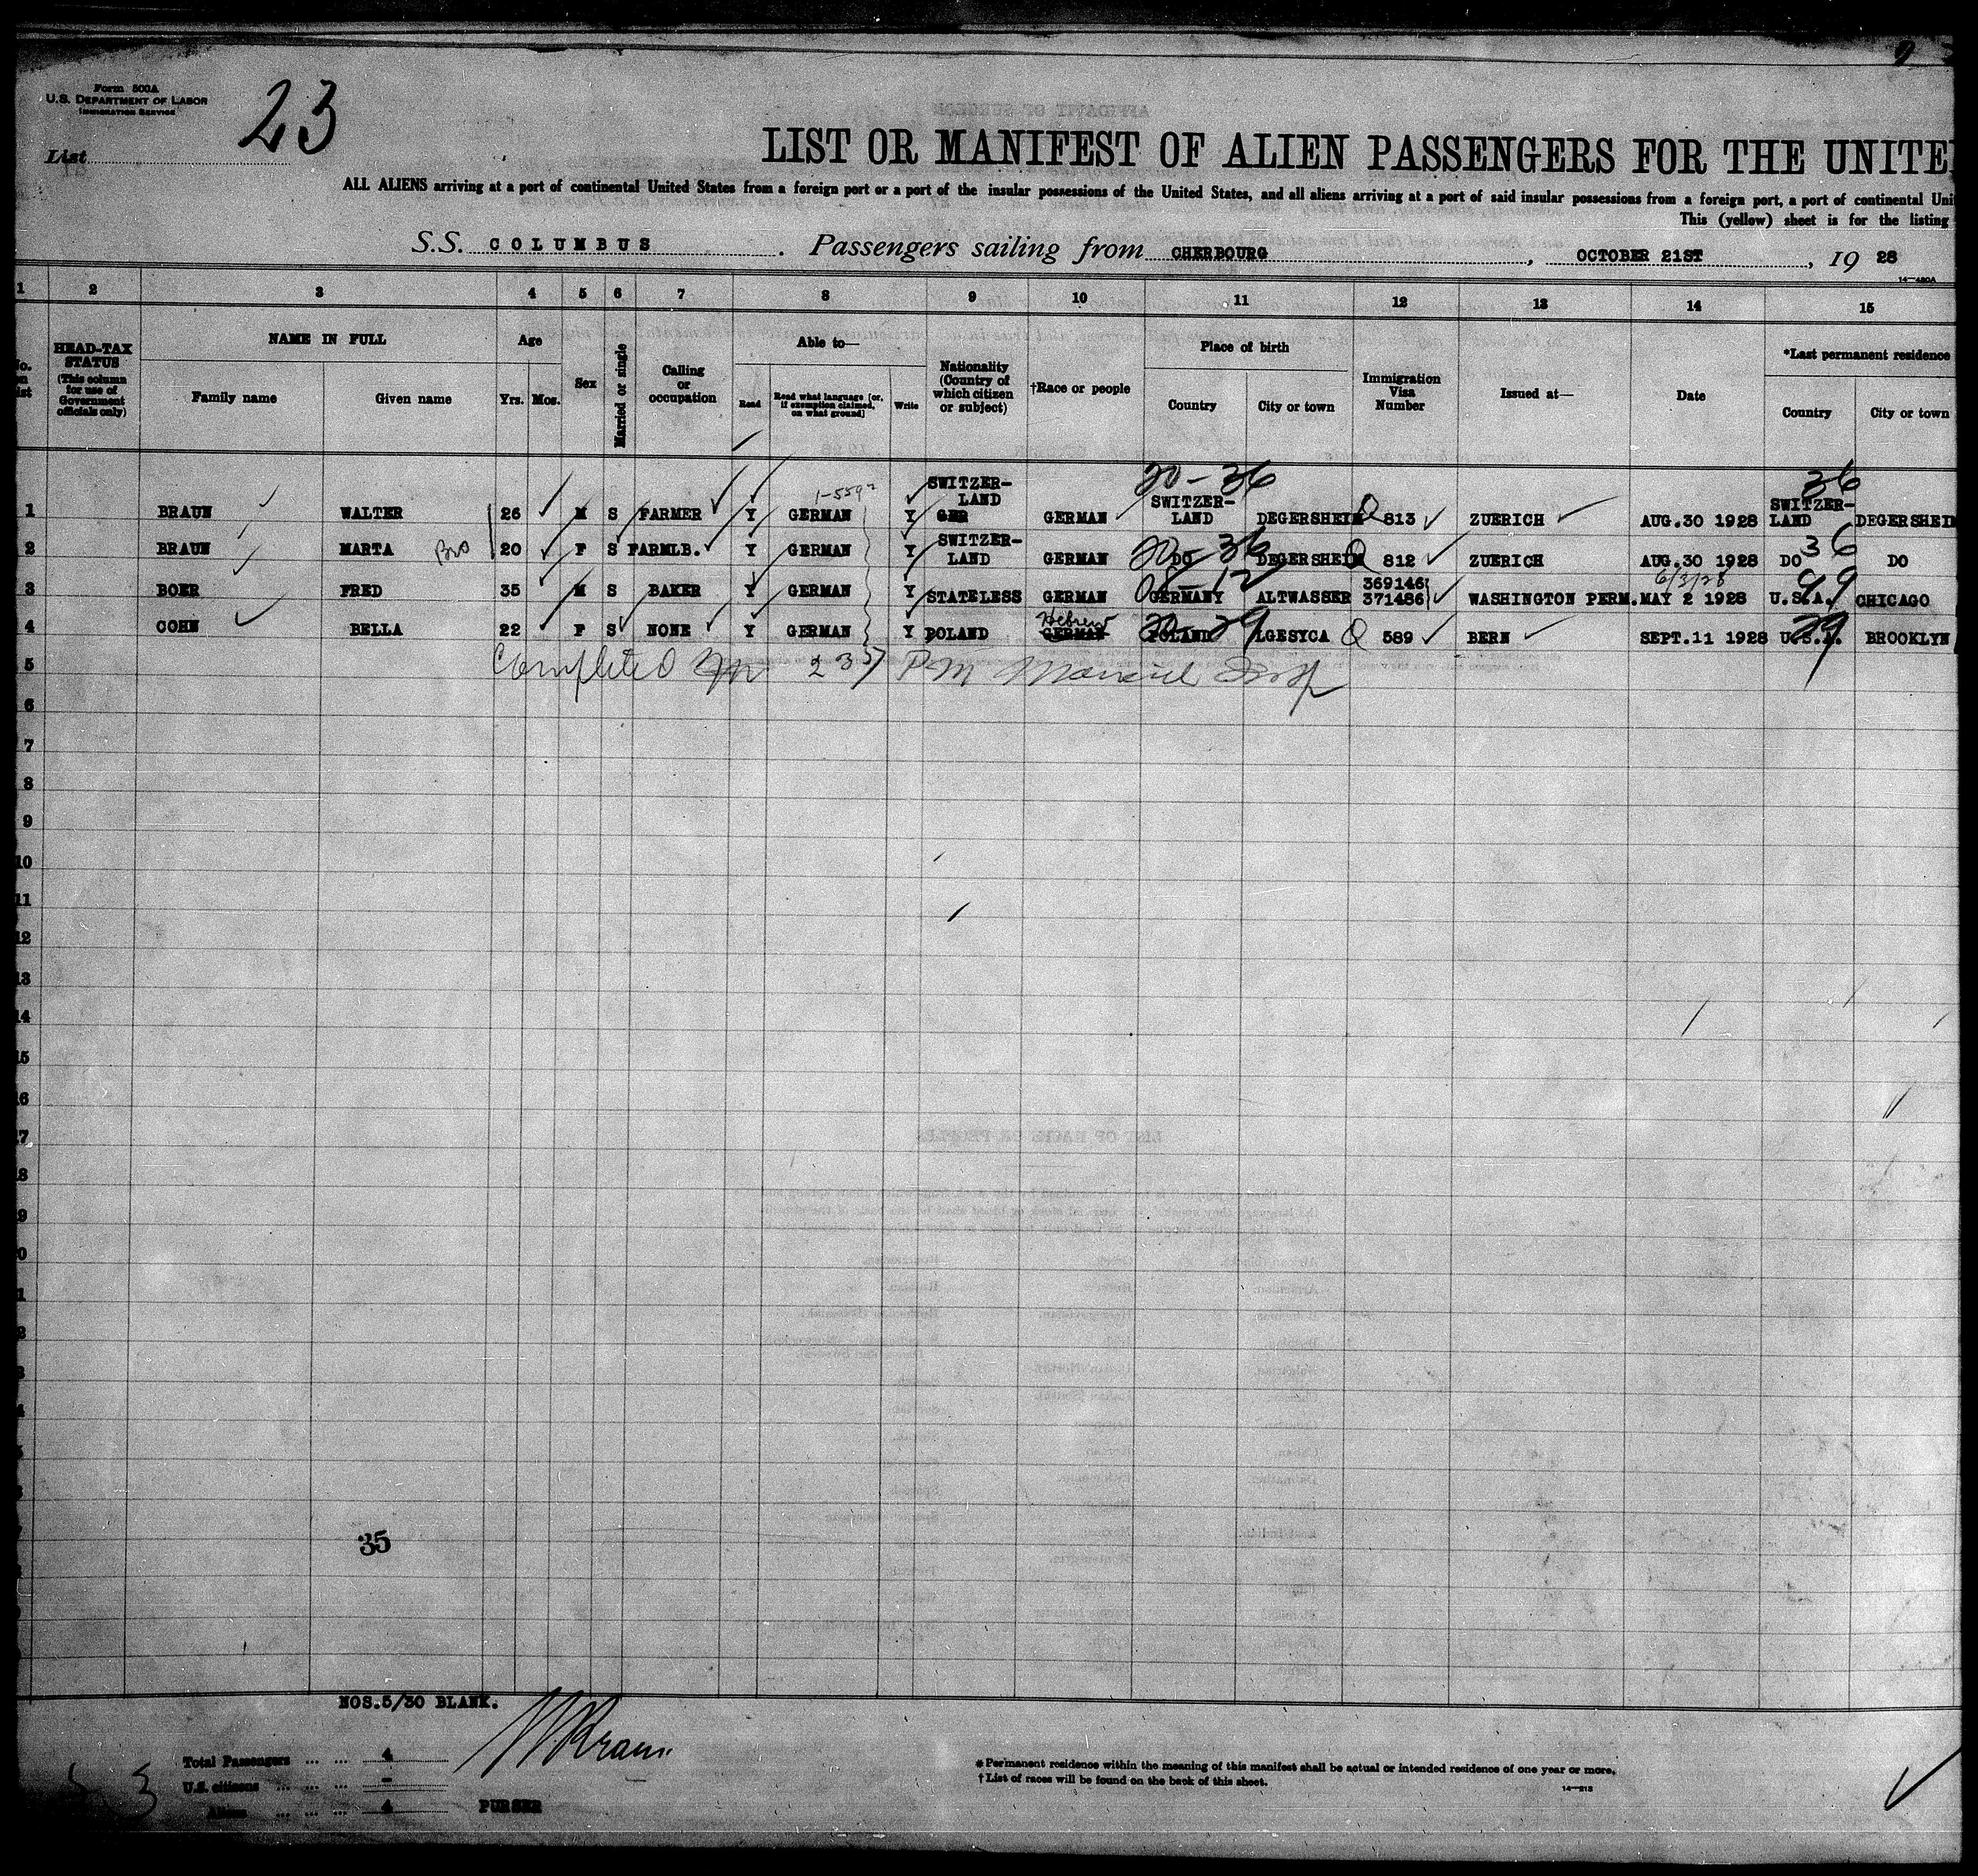 Form 500A
U.S. DEPARTMENT OF LABOR
IMMIGRATION SERVICE
23
List
LIST OR MANIFEST OF ALIEN PASSENGERS FOR THE UNITE
ALL ALIENS arriving at a port of continental United States from a foreign port or a port of the insular possessions of the United States, and all aliens arriving at a port of said insular possessions from a foreign port, a port of continental Uni
This (yellow) sheet is for the listing
S.S. COLUMBUS. Passengers sailing from CHERBOURG, OCTOBER 21ST, 19 28
14—480A
1 2 3 4 5 6 7 8 9 10 11 12 13 14 15
HEAD-TAX STATUS (This column for use of Government officials only)
NAME IN FULL
Family name Given name
Age
Yrs. Mos.
Sex
Married or single
Calling or occupation
Able to—
Read Read what language [or, if exemption claimed, on what ground] Write
Nationality (Country of which citizen or subject)
†Race or people
Place of birth
Country City or town
Immigration Visa Number
Issued at—
Date
*Last permanent residence
Country City or town
1 BRAUN WALTER 26 M S FARMER Y GERMAN 1-5592 Y SWITZER-LAND GER GERMAN 20-36 SWITZER-LAND DEGERSHEIM Q 813 ZUERICH AUG.30 1928 36 SWITZER-LAND DEGERSHEIM
2 BRAUN MARTA Bro 20 F S FARMLB. Y GERMAN Y SWITZER-LAND GERMAN 20-36 DO DEGERSHEIM Q 812 ZUERICH AUG.30 1928 36 DO DO
3 BOER FRED 35 M S BAKER Y GERMAN Y STATELESS GERMAN 08-12 GERMANY ALTWASSER 369146 371486 WASHINGTON PERM. 6/3/28 MAY 2 1928 99 U.S.A. CHICAGO
4 COHN BELLA 22 F S NONE Y GERMAN Y POLAND Hebrew GERMAN 20-29 POLAND LGESYCA Q 589 BERN SEPT.11 1928 29 U.S.A. BROOKLYN
5 Completed 2 35 PM
6
7
8
9
10
11
12
13
14
15
16
17
18
19
35
NOS.5/30 BLANK.
Total Passengers ... ... 4
U.S. citizens ... ... ... -
Aliens ... ... ... 4
PURSER
* Permanent residence within the meaning of this manifest shall be actual or intended residence of one year or more.
† List of races will be found on the back of this sheet.
14—213